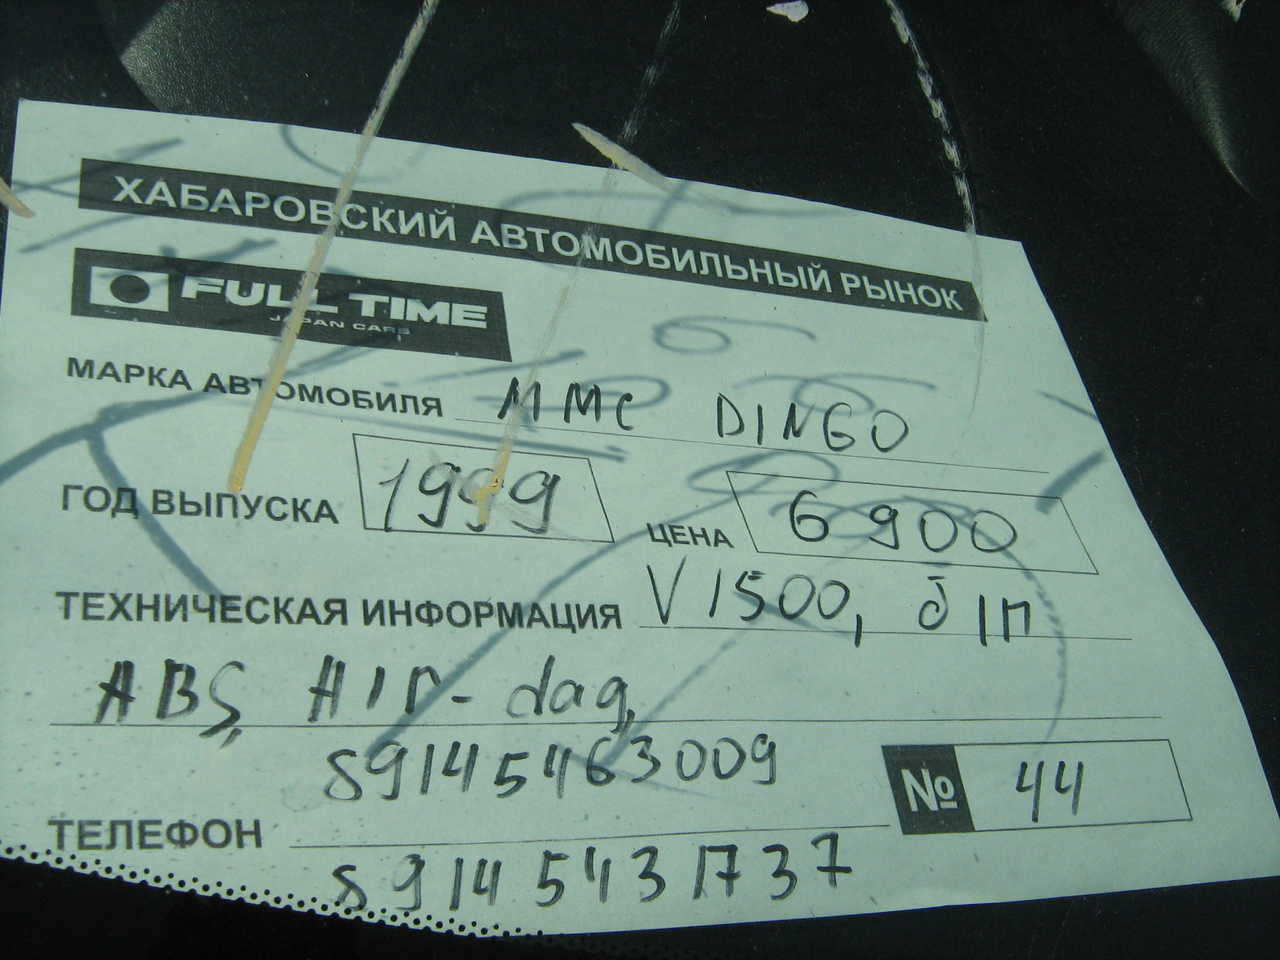 ХАБАРОВСКИЙ АВТОМОБИЛЬНЫЙ РЫНОК
FULL TIME
JAPAN CARS
МАРКА АВТОМОБИЛЯ MMC DINGO
ГОД ВЫПУСКА 1999 ЦЕНА 6900
ТЕХНИЧЕСКАЯ ИНФОРМАЦИЯ V 1500, б/п
ABS, AIR-dag,
89145463009
№ 44
ТЕЛЕФОН
89145431737